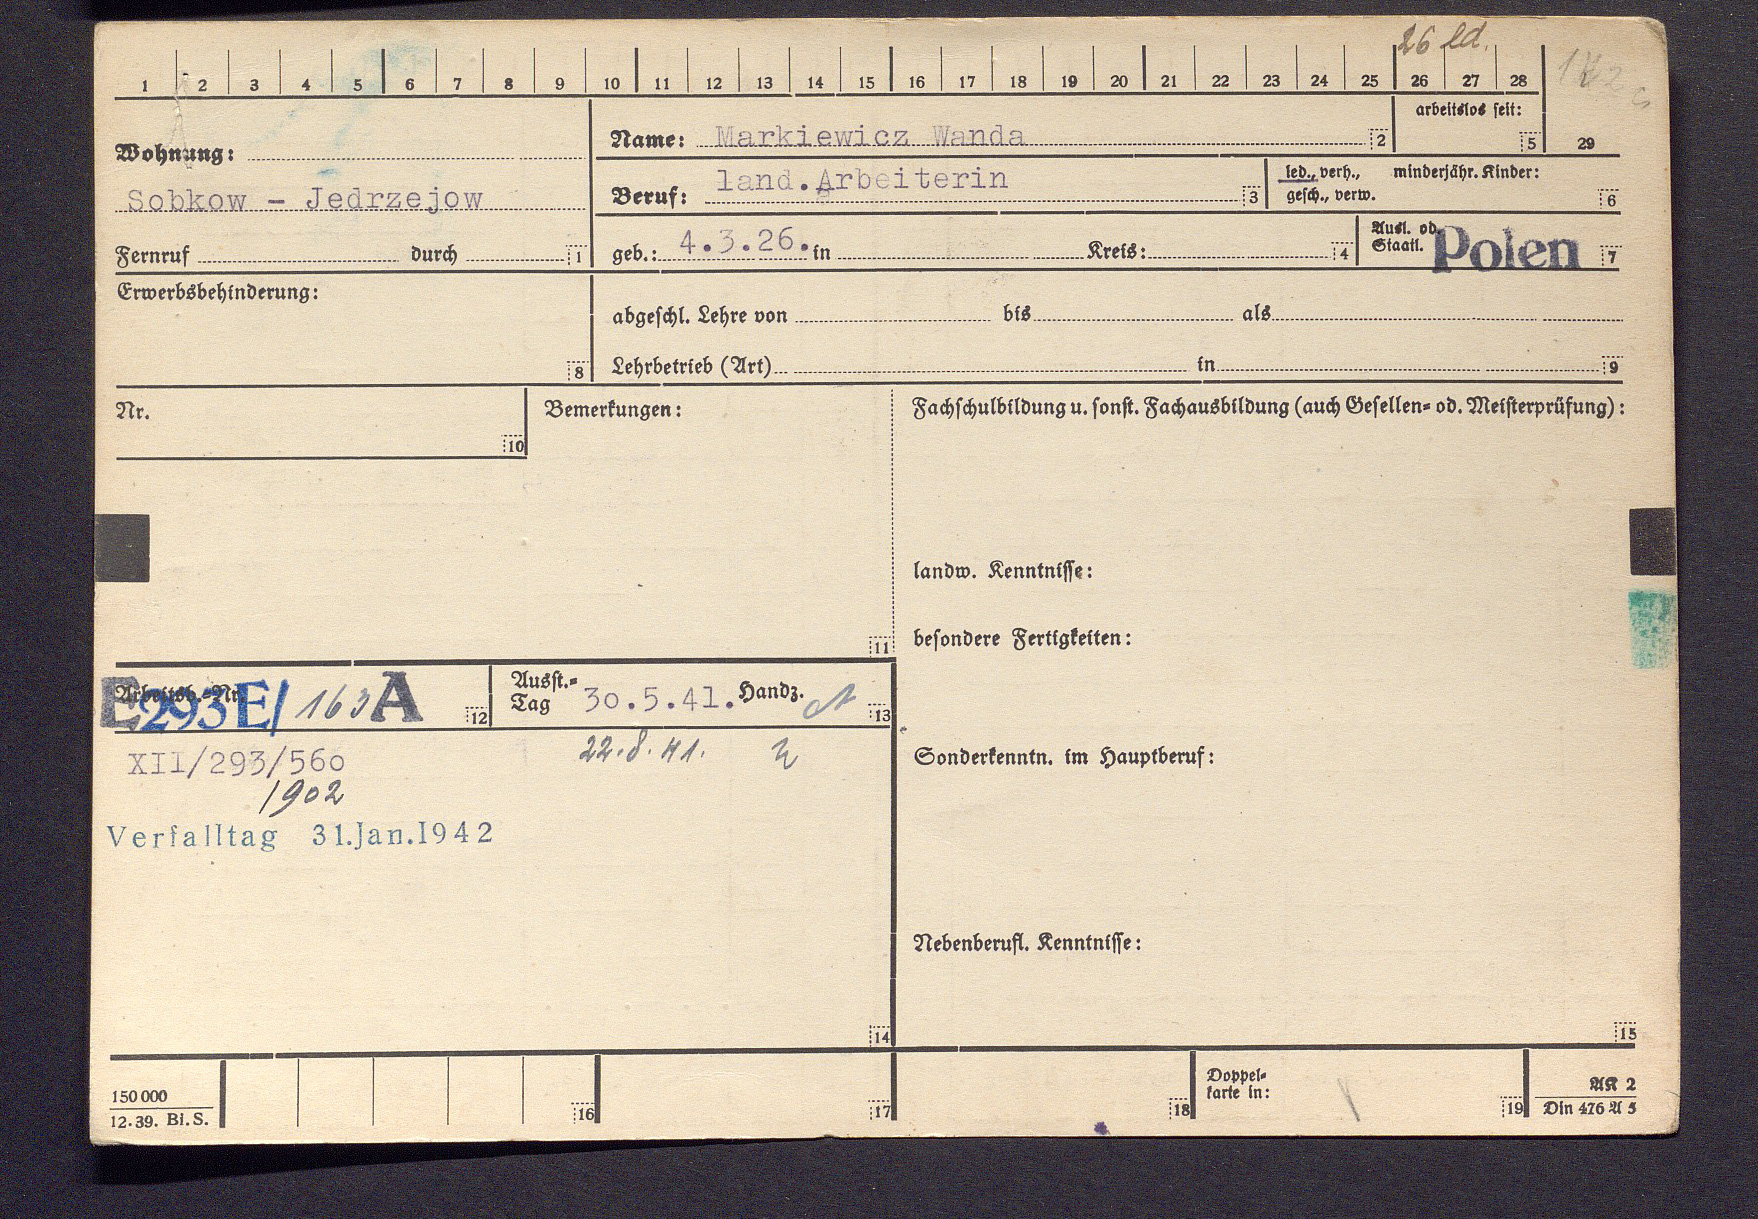 26 led.
1 2 3 4 5 6 7 8 9 10 11 12 13 14 15 16 17 18 19 20 21 22 23 24 25 26 27 28
arbeitslos seit:
5 29
Wohnung:
Sobkow - Jedrzejow
Fernruf durch 1
Name: Markiewicz Wanda 2
Beruf: land.Arbeiterin 3
led., verh., minderjähr. Kinder:
gesch., verw. 6
geb.: 4.3.26. in Kreis: 4
Ausl. od.
Staatl. Polen 7
Erwerbsbehinderung:
8
abgeschl. Lehre von bis als
Lehrbetrieb (Art) in 9
Nr.
10
Bemerkungen:
11
Fachschulbildung u. sonst. Fachausbildung (auch Gesellen- od. Meisterprüfung):
landw. Kenntnisse:
besondere Fertigkeiten:
Arbeitsb.-Nr.
E 293 E/ 163 A 12
Ausst.-
Tag 30.5.41. Handz. 13
XII/293/560 22.8.41.
1902
Verfalltag 31.Jan.1942
14
Sonderkenntn. im Hauptberuf:
Nebenberufl. Kenntnisse:
15
150 000
12.39. Bi.S.
16 17 18
Doppel-
karte in:
19
AK 2
Din 476 A 5